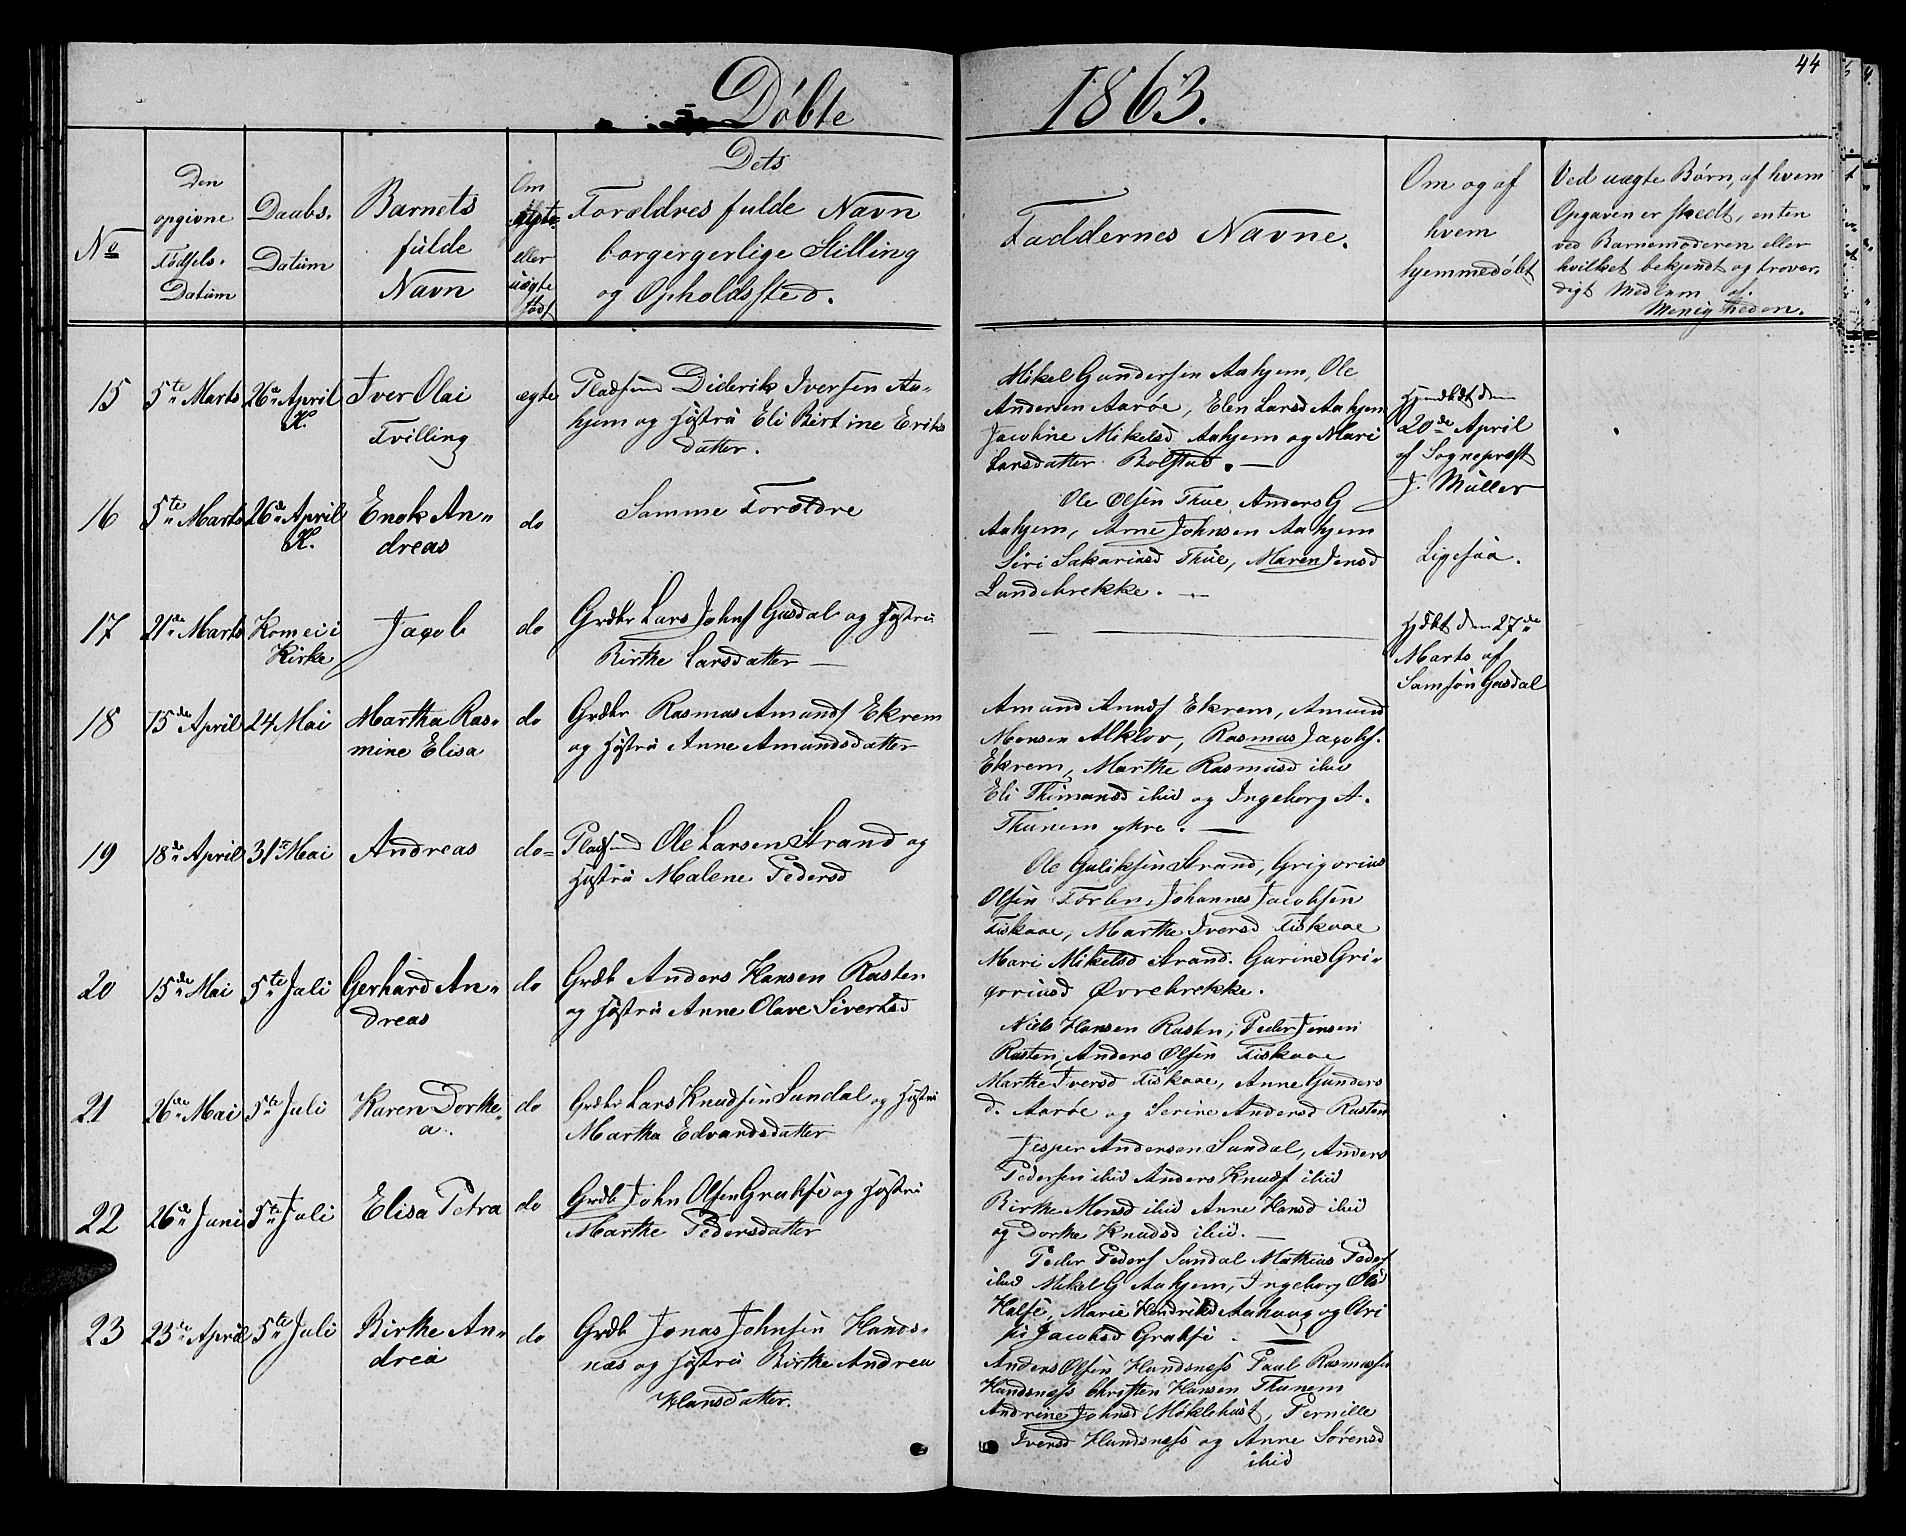 44
Døbte 1863.
No
Den
opgivne
Fødsels-
Datum
Daabs-
Datum
Barnets
fulde
Navn
Om
ægte
eller
uægte
født
Dets
Forældres fulde Navn
borgergerlige Stilling
og Opholdssted.
Faddernes Navne.
Om og af
hvem
hjemmedøbt
Ved uægte Børn, af hvem
Opgaven er skedt, enten
ved Barnemoderen eller
hvilket bekjendt og trover-
digt Medlem af
Menigheden.
15
5te Marts
26de April
K.
Iver Olai
Tvilling
ægte
Pladsmd Diderik Iversen Aa-
hjem og Hustru Eli Birtine Eriks
datter.
Mikel Gundersen Aahjem, Ole
Andersen Aarøe, Elen Larsd Aahjem
Jacobine Mikelsd Aahjem og Mari
Larsdatter Bolstad. —
Hjemdøbt den
20de April
af Sogneprest
J. Müller
16
5te Marts
26de April
K.
Enok An-
dreas
do
Samme Forældre
Ole Olsen Thue, Anders G
Aahjem, Arne Johnsen Aahjem
Siri Sakariasd Thue, Maren Jensd
Landebrekke. —
Ligesaa.
17
21de Marts
Kom ei i
Kirke
Jacob
do
Grdbr Lars Johns Gusdal og Hustru
Birthe Larsdatter —
Hjdbt den 27de
Marts af
Samson Gusdal
18
15de April
24 Mai
Martha Ras-
mine Elisa
do
Grdbr Rasmus Amunds Ekrem
og Hustru Anne Amundsdatter
Amund Annds Ekrem, Amund
Monsen Alklov, Rasmus Jacobs.
Ekrem, Marthe Rasmusd ibid
Eli Thimansd ibid og Ingeborg A.
Thunem ykre. —
19
18de April
31te Mai
Andreas
do
Pladsmd Ole Larsen Strand og
Hustru Malene Pedersd
Ole Guliksen Strand, Grigorius
Olsen Førlen, Johannes Jacobsen
Fiskaae, Marthe Iversd Fiskaae
Mari Mikelsd Strand. Gurine Gri-
goriusd Øvrebrekke.
20
15de Mai
5te Juli
Gerhard An-
dreas
do
Grdb Anders Hansen Rasten
og Hustru Anne Olave Sivertsd
Niels Hansen Rusten, Peder Jensen
Rusten, Anders Olsen Fiskaae
Marthe Iversd Fiskaae, Anne Gunders
d. Aarøe og Serine Andersd Rusten
21
26de Mai
5te Juli
Karen Dorthe-
a.
do
Grdbr Lars Knudsen Sundal og Hustru
Martha Edvardsdatter
Jesper Andersen Sundal, Anders
Pedersen ibid Anders Knuds ibid
Birthe Monsd ibid Anne Hansd ibid
og Dorthe Knudsd ibid. —
22
26de Juni
5te Juli
Elisa Petra
do
Grdb John Olsen Grahse og Hustru
Marthe Pedersdatter
Peder Peders Sundal Mathias Peders
ibid Mikel G Aahjem, Ingeborg Olsd
Marie Hendriksd Aahaug og
Jacobsd Grahse. —
23
23de April
5te Juli
Birthe An-
drea
do
Grdb Jonas Johnsen Hunds-
næs og Hustru Birthe Andrea
Hansdatter.
Anders Olsen Hundsness Paul Rasmussen
Hundsness Christen Hansen Thunem
Andrine Johnsd Møklebust, Pernille
Iversd Hundsness og Anne Sørensd
ibid